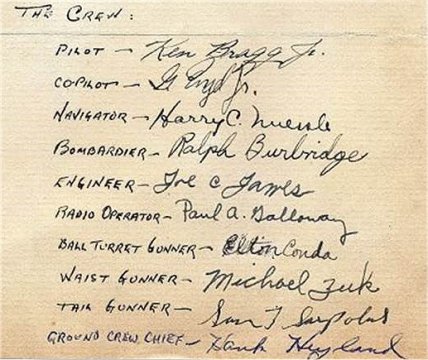 THE CREW:
PILOT - Ken Bragg Jr.
COPILOT - G Boyd Jr.
NAVIGATOR - Harry C. Nuessle
BOMBARDIER - Ralph Burbridge
ENGINEER - Joe C James
RADIO OPERATOR - Paul A. Galloway
BALL TURRET GUNNER - Elton Conda
WAIST GUNNER - Michael Zuk
TAIL GUNNER - Sam T Sarpolus
GROUND CREW CHIEF - Hank Hyland